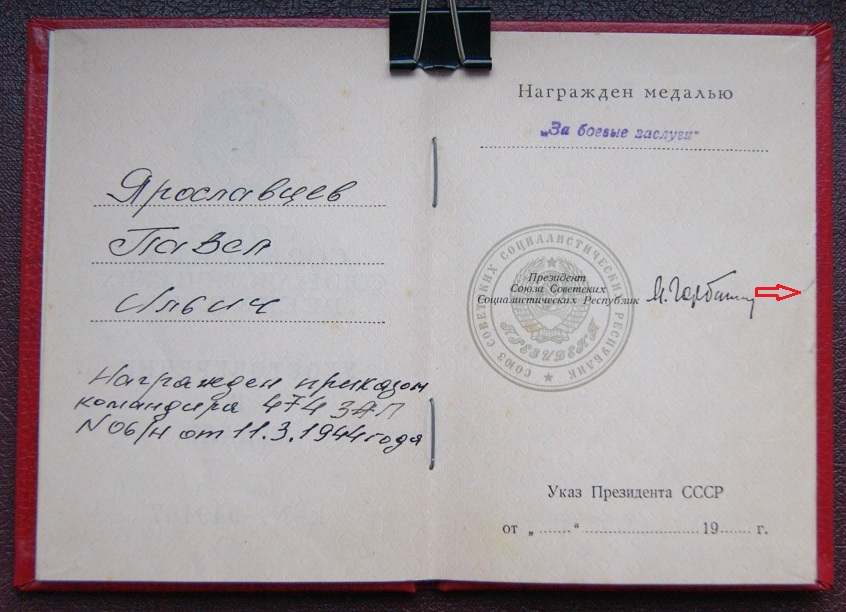 Ярославцев
Павел
Ильич
Награжден приказом
командира 474 ЗАП
№ Об/н от 11.3.1944 года
Награжден медалью
„За боевые заслуги"
Президент
Союза Советских
Социалистических Республик
М. Горбачев
СОЮЗ СОВЕТСКИХ СОЦИАЛИСТИЧЕСКИХ РЕСПУБЛИК
ПРЕЗИДЕНТ
Указ Президента СССР
от „ ...... " ........................ 19 ....... г.